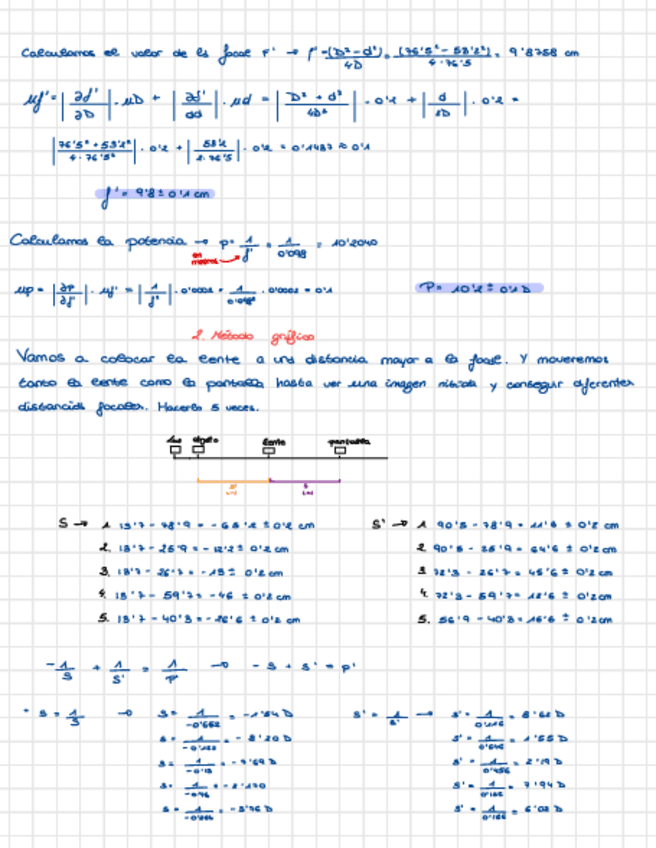 Calculamos el valor de la focal F' → f' = (D² - d²) / 4D = (76'5² - 53'2²) / 4·76'5 = 9'8758 cm
μf' = |∂f'/∂D| · μD + |∂f'/∂d| · μd = |D² + d²/4D²| · 0'2 + |d/2D| · 0'2 =
|76'5² + 53'2²/4·76'5²| · 0'2 + |53'2/2·76'5| · 0'2 = 0'1487 ≈ 0'1
f' = 9'8 ± 0'1 cm
Calculamos la potencia → P = 1/f' = 1/0'098 = 10'2040
en metros
μp = |∂P/∂f'| · μf' = |1/f'²| ·
P = 10'2 ± 0'1 D
2. Método gráfico
Vamos a colocar la lente a una distancia mayor a la focal. Y moveremos
tanto la lente como la pantalla hasta ver una imagen nítida y conseguir diferentes
distancias focales. Hacerlo 5 veces.
luz objeto lente pantalla
S → 1. 13'7 - 78'9 = - 65'2 ± 0'2 cm
2. 13'7 - 25'9 = - 12'2 ± 0'2 cm
3. 13'7 - 26'7 = - 13 ± 0'2 cm
4. 13'7 - 59'7 = - 46 ± 0'2 cm
5. 13'7 - 40'3 = - 26'6 ± 0'2 cm
S' → 1. 90'5 - 78'9 = 11'6 ± 0'2 cm
2. 90'5 - 25'9 = 64'6 ± 0'2 cm
3. 72'3 - 26'7 = 45'6 ± 0'2 cm
4. 72'3 - 59'7 = 12'6 ± 0'2 cm
5. 56'9 - 40'3 = 16'6 ± 0'2 cm
-1/S + 1/S' = 1/P' → - S + S' = P'
· S = 1/S → S = 1/-0'652 = -1'54 D
S = 1/-0'122 = - 8'20 D
S = 1/-0'13 = - 7'69 D
S = 1/-0'46 = - 2'17 D
S = 1/-0'266 = - 3'76 D
S' = 1/S' → S' = 1/0'116 = 8'62 D
S' = 1/0'646 = 1'55 D
S' = 1/0'456 = 2'19 D
S' = 1/0'126 = 7'94 D
S' = 1/0'166 = 6'02 D